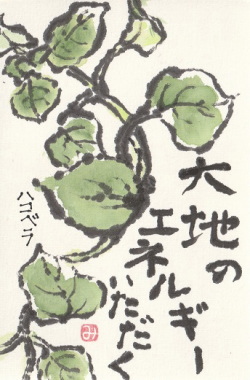 大地の
エネルギー
いただく
ハコベラ
み